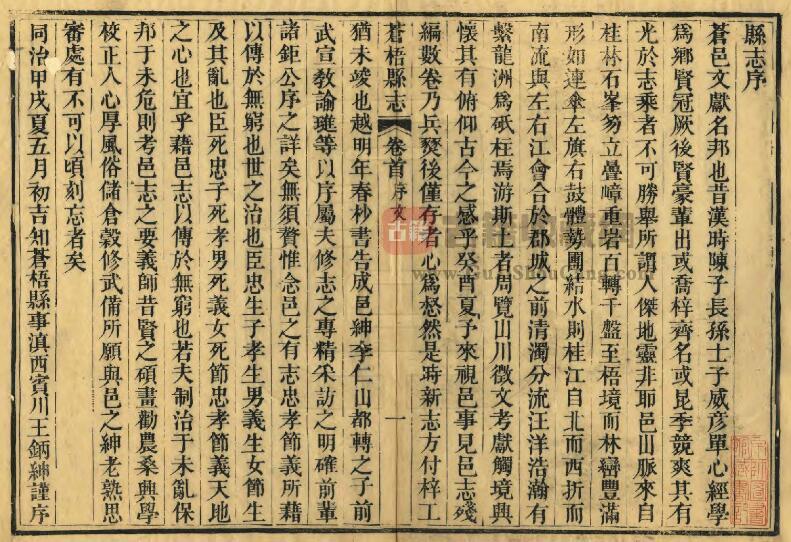 縣志序
蒼邑文獻名邦也昔漢時陳子長孫士子威彥單心經學
爲鄉賢冠厥後賢豪輩出或喬梓齊名或昆季競爽其有
光於志乘者不可勝舉所謂人傑地靈非耶邑山脈來自
桂林石峯筍立疊嶂重岩百轉千盤至梧境而林巒豐滿
形如連傘左旗右鼓體勢團結水則桂江自北而西折而
南流與左右江會合於郡城之前清濁分流汪洋浩瀚有
繫龍洲爲砥柱焉游斯土者周覽山川徵文考獻觸境興
懷其有俯仰古今之感乎癸酉夏予來視邑事見邑志殘
編數卷乃兵燹後僅存者心爲惄然是時新志方付梓工
蒼梧縣志
卷首
序文
一
猶未竣也越明年春杪書告成邑紳李仁山都轉之子前
武宣教諭璡等以序屬夫修志之專精采訪之明確前輩
諸鉅公序之詳矣無須贅惟念邑之有志忠孝節義所藉
以傳於無窮也世之治也臣忠生子孝生男義生女節生
及其亂也臣死忠子死孝男死義女死節忠孝節義天地
之心也宜乎藉邑志以傳於無窮也若夫制治于未亂保
邦于未危則考邑志之要義師昔賢之碩畫勸農桑興學
校正人心厚風俗儲倉穀修武備所願與邑之紳老熟思
審處有不可以頃刻忘者矣
同治甲戌夏五月初吉知蒼梧縣事滇西賓川王鈵紳謹序
古籍